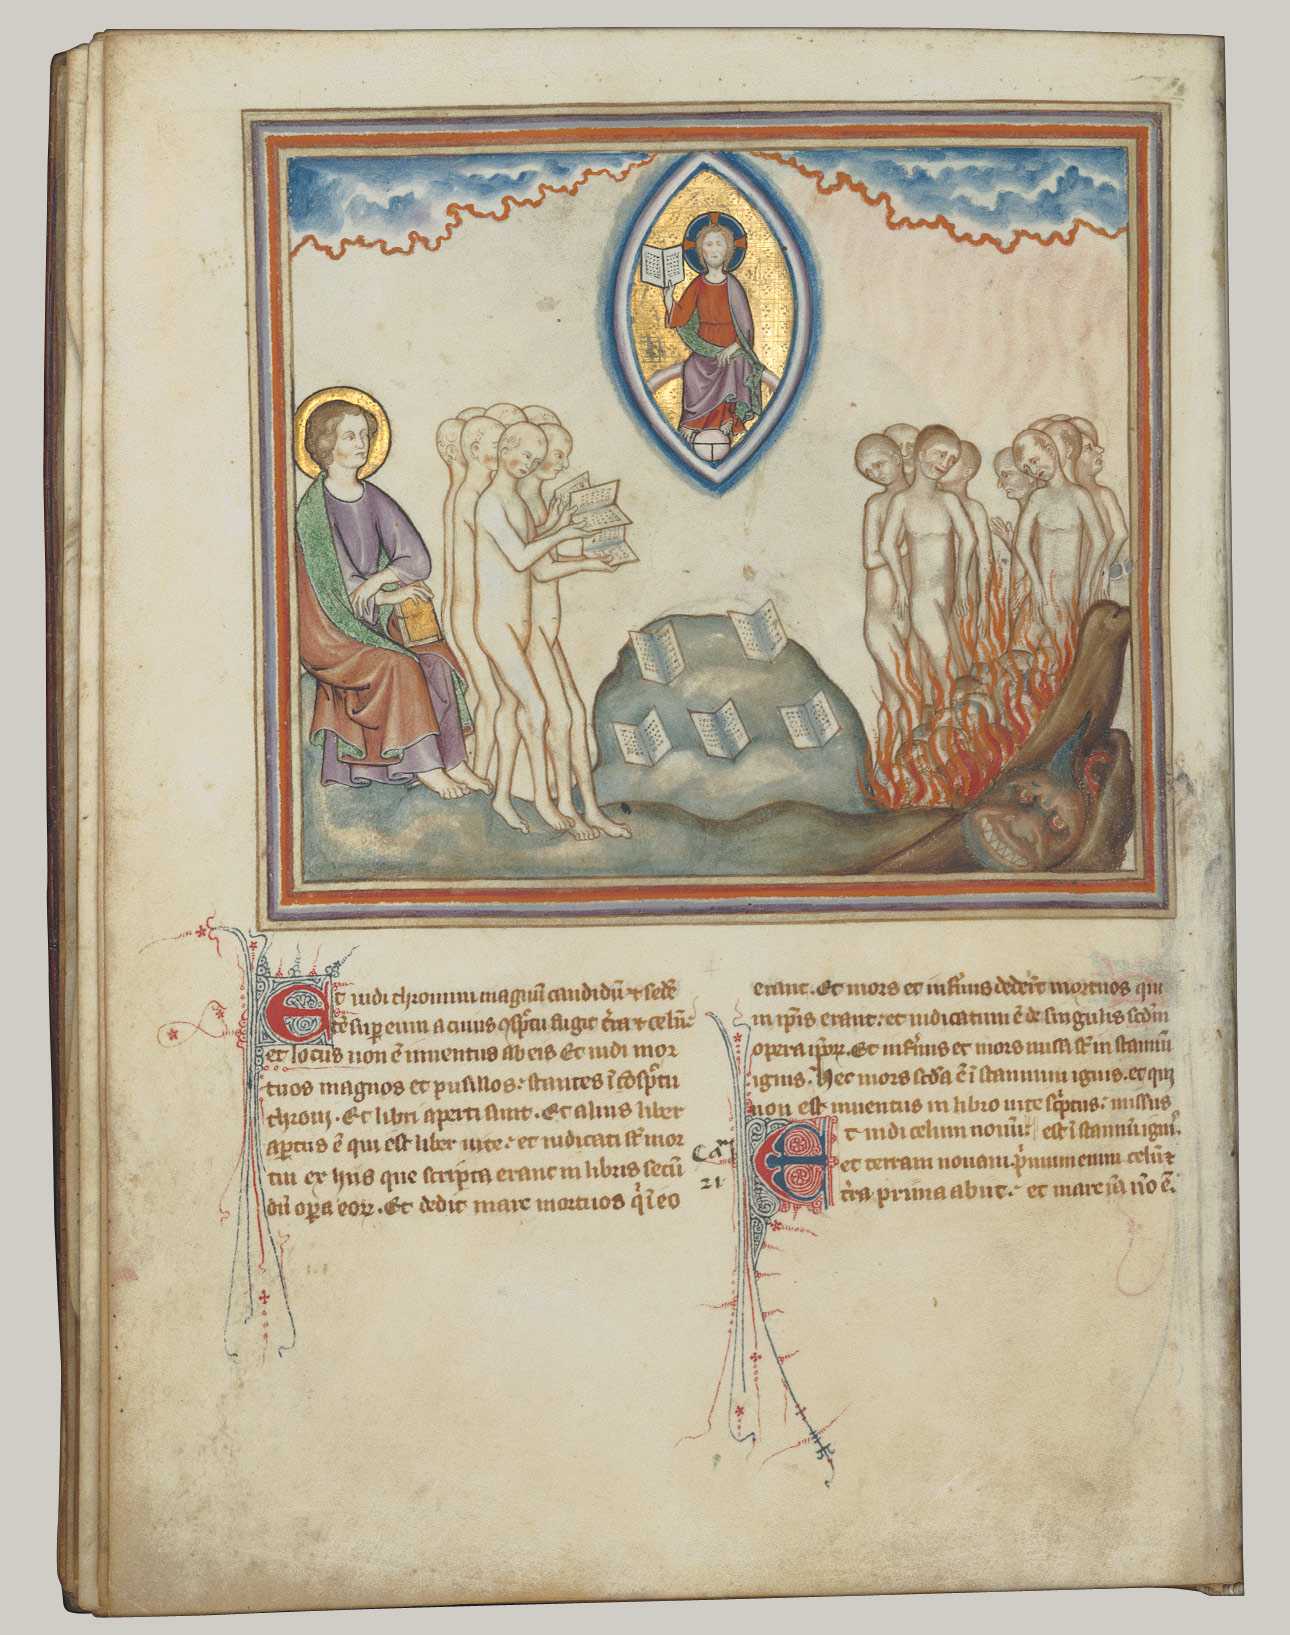 Et uidi thronum magnū candidū ⁊ sedē
tē sup̄ eum a cuius ꝯspc̄tu fugit tr̄a ⁊ celū:
et locus non ē inuentus ab eis Et uidi mor
tuos magnos et pusillos: stantes ī ꝯspc̄tu
throni. Et libri aperti sunt. Et alius liber
apertus ē qui est liber uite: et iudicati sr̄ mor
tui ex hiis que scripta erant in libris secū
dū opera eoꝝ. Et dedit mare mortuos q̄ ī eo
erant. Et mors et infrn̄s dedert̄ mortuos qui
in ip̄is erant: et iudicatum ē de singulis scdm̄
opera ip̄oꝝ. Et infrn̄s et mors missi sr̄ in stannū
ignis. Hec mors scd̄a ē ī stannum ignis. et qui
non est inuentus in libro uite sc̄ptus: missus
est ī stannū igniˢ.
Et uidi celum nouū:
et terram nouam. pⁱmum enim celū ⁊
tr̄a prima abiit: et mare iā nō ē.
Caᵐ
21.